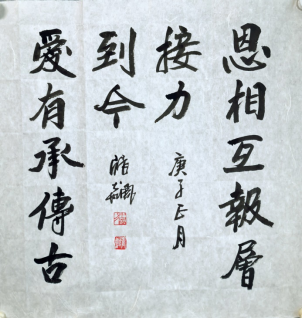 恩相互報層
接力
庚子正月
愛有承傳古
到今